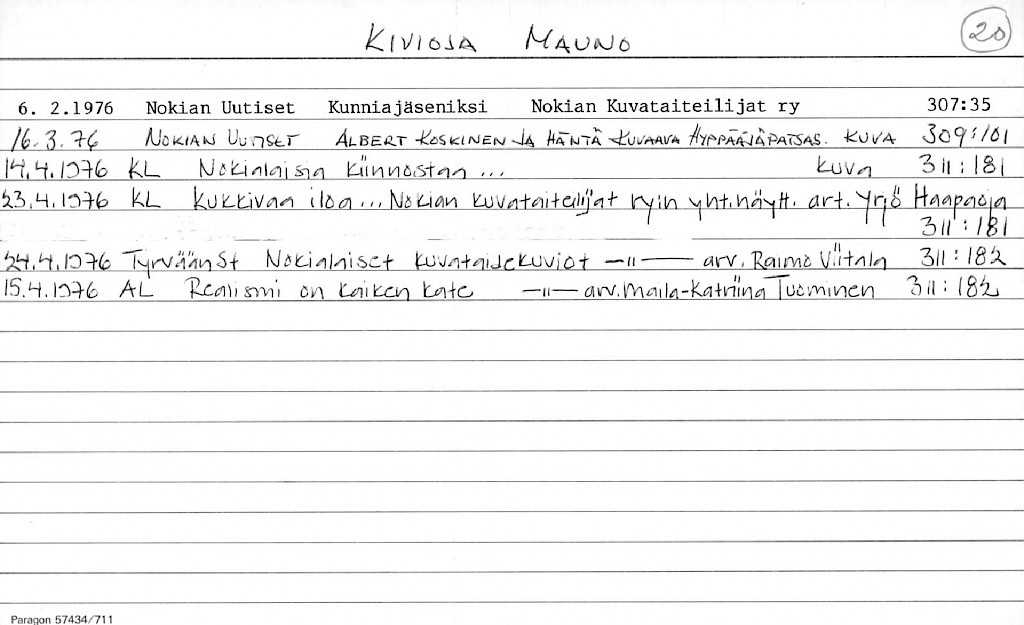 KIVIOJA MAUNO 20
6. 2.1976 Nokian Uutiset Kunniajäseniksi Nokian Kuvataiteilijat ry 307:35
16.3.76 NOKIAN UUTISET ALBERT KOSKINEN JA HÄNTÄ KUVAAVA HYPPÄÄJÄPATSAS. KUVA 309:101
14.4.1976 KL Nokialaisia kiinnostaa ... kuva 311:181
23.4.1976 KL Kukkivaa iloa... Nokian kuvataiteilijat ry:n yht.näytt. art. Yrjö Haapaoja
311:181
24.4.1976 TyrväänSt Nokialaiset kuvataidekuviot —"— arv. Raimo Viitala 311:182
15.4.1976 AL Realismi on kaiken kate —"— arv. Maila-Katriina Tuominen 311:182
Paragon 57434/711